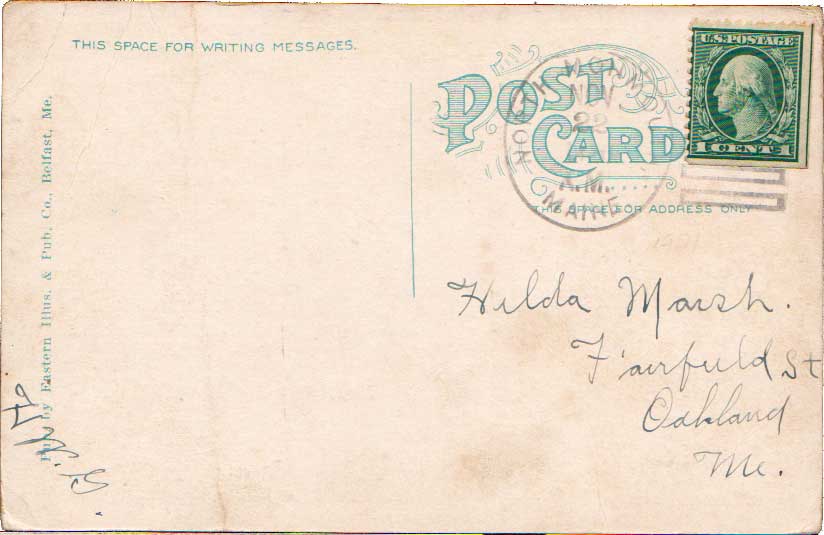 THIS SPACE FOR WRITING MESSAGES.
POST CARD
THIS SPACE FOR ADDRESS ONLY
U.S. POSTAGE
1 CENT 1
NORTH
NOV
22
A.M.
MAINE
Hilda Marsh.
Fairfield St
Oakland
Me.
Pub. by Eastern Illus. & Pub. Co., Belfast, Me.